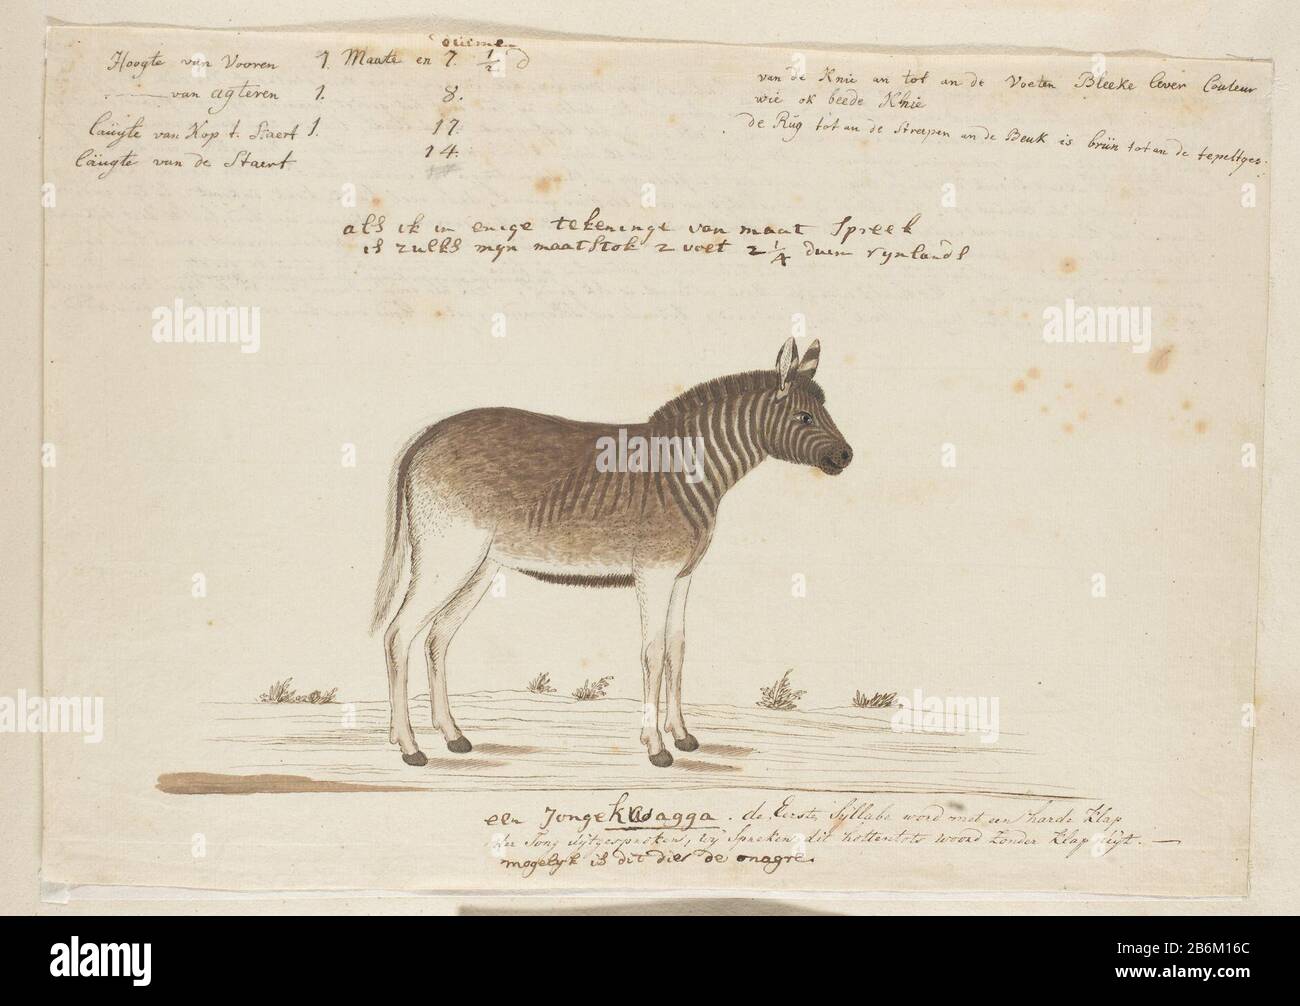 duime
Hoogte van Vooren 1. Maate en 7. 1/2 d
—— van agteren 1. 8.
läugte van Kop t. Staert 1. 17.
läugte van de Staert 14.
van de Knie an tot an de Voeten Bleeke Lever Couleur
wie ok beede Knie
de Rüg tot an de Streepen an de Beuk is brün tot an de tepeltges.
als ik in enige tekeninge van maat Spreek
is zulks mijn maatstok 2 voet 2 1/4 duim rynlands
een Jonge kwagga. de Eerste Syllabe word met een harde Klap
der Tong uytgesprooken, wy Spreken dit hottentots woord zonder Klap uyt. —
mogelyk is dit dies de onagre.
alamy
alamy
alamy
alamy
alamy
alamy
a
a
a
alamy
Image ID: B6M16C
www.alamy.com